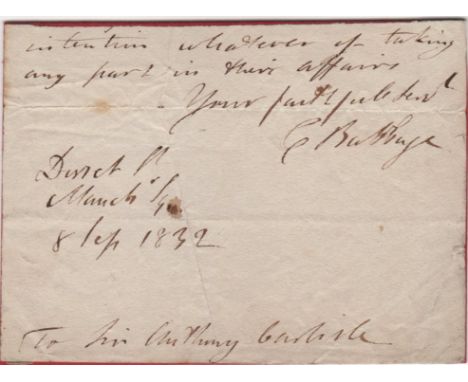 intention whatever of taking
any part in their affairs
Your faithful Servt
C Babbage
Dorset St
Manchr Sq
8 Sep 1832
To Sir Anthony Carlisle